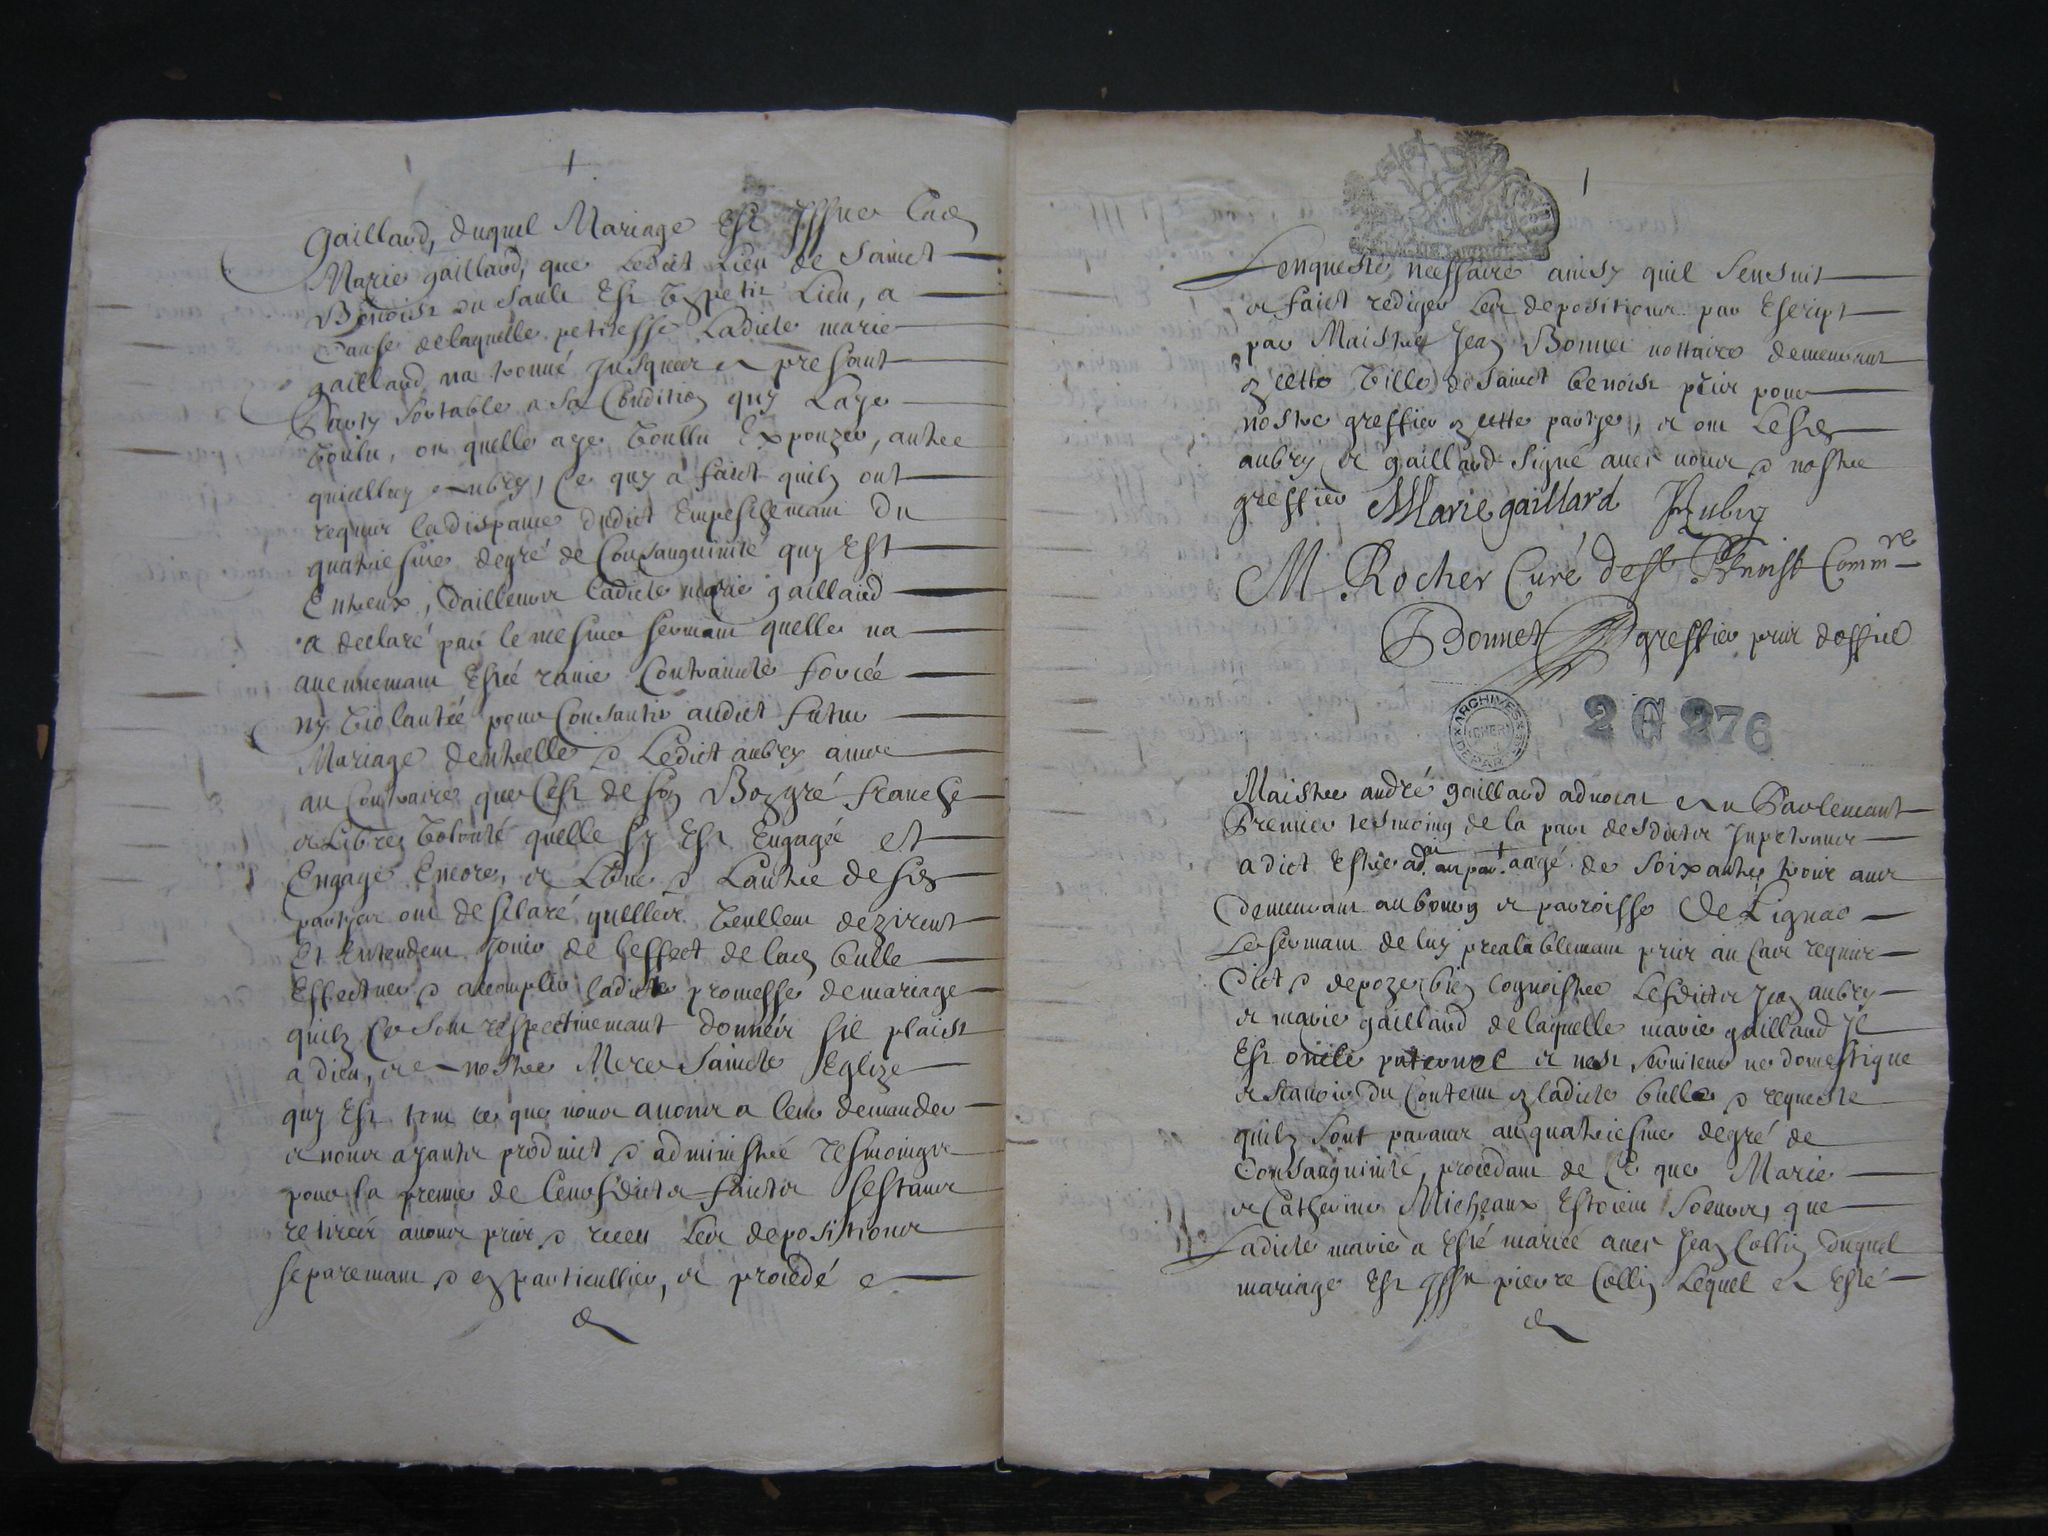 Gaillard, duquel Mariage Est Yssue Lad
Marie gaillard, que Ledict Lieu de Sainct
Benoist du Sault Est Un petit Lieu, a
Cause de laquelle petitesse Ladicte marie
gaillard na trouvé Jusques a presant
Party Sortable a Sa Condition quy Laye
Voulu, ou quelle aye Voullu Expouzer, autre
que aubry, Ce quy a faict quilz ont
requis la dispance dudict Empeschemant du
quatriesme degré de Consanguinité quy Est
Entreux, dailleurs Ladicte marie gaillard
a declaré par le mesme sermant quelle na
aucunnemant Esté ravie Contraincte forcée
ny Violantée pour Consantir audict futur
Mariage dentrelle & Ledict aubry ains
au Contraire que Cest de Son Bon gré franche
et Libre Volonté quelle Sy Est Engagée et
Engage Encore, et Lun & Lautre desd
parties ont desclaré quelles Veullent dezirent
Et Entendent Jouir de leffect de lad bulle
Effectuer & acomplir ladicte promesse de mariage
quilz Se Sont respectivemant donnée sil plaist
a dieu, et a nostre Mere Saincte Eglize
quy Est tout ce que nous avons a leur demander
et nous ayants produict & administré tesmoings
pour la preuve de leursdicts faicts Sestants
retirés avons pris & receu Les depositions
separemant & en particullier, et procedé a
1
Lenqueste necessaire ainsy quil Sensuit
et faict rediger Les depositions par Escript
par Maistre Jean Bonnet nottaire demeurant
en cette Ville de Sainct benoist pris pour
nostre greffier en cette partye, et ont Lesd
aubry et gaillard Signé avec nous & nostre
greffier Marie gaillard JAubry
M. Rocher Curé de St Benoist Commre
Bonnet greffier pris doffice
ARCHIVES DEPART CHER
2 G 276
Maistre andré gaillard advocat en Parlemant
Premier tesmoing de la part desdicts Inpetrans
a dict Estre adat au par. aagé de Soixante trois ans
demeurant au bourg et parroisse de Lignac
Le Sermant de luy prealablemant pris au Cas requis
dict & depoze bien Cognoistre Lesdicts Jean aubry
et marie gaillard de laquelle marie gaillard Il
Est oncle paternel et nest Serviteur ne domestique
et Scavoir du Contenu en ladicte bulle & requeste
quilz Sont parans au quatriesme degré de
Consanguinité, procedant de Ce que Marie
et Catherine Micheaux Estoient Soeurs, que
Ladicte marie a Esté mariée avec Jean Collin duquel
mariage Est yssu pierre Collin Lequel a Esté